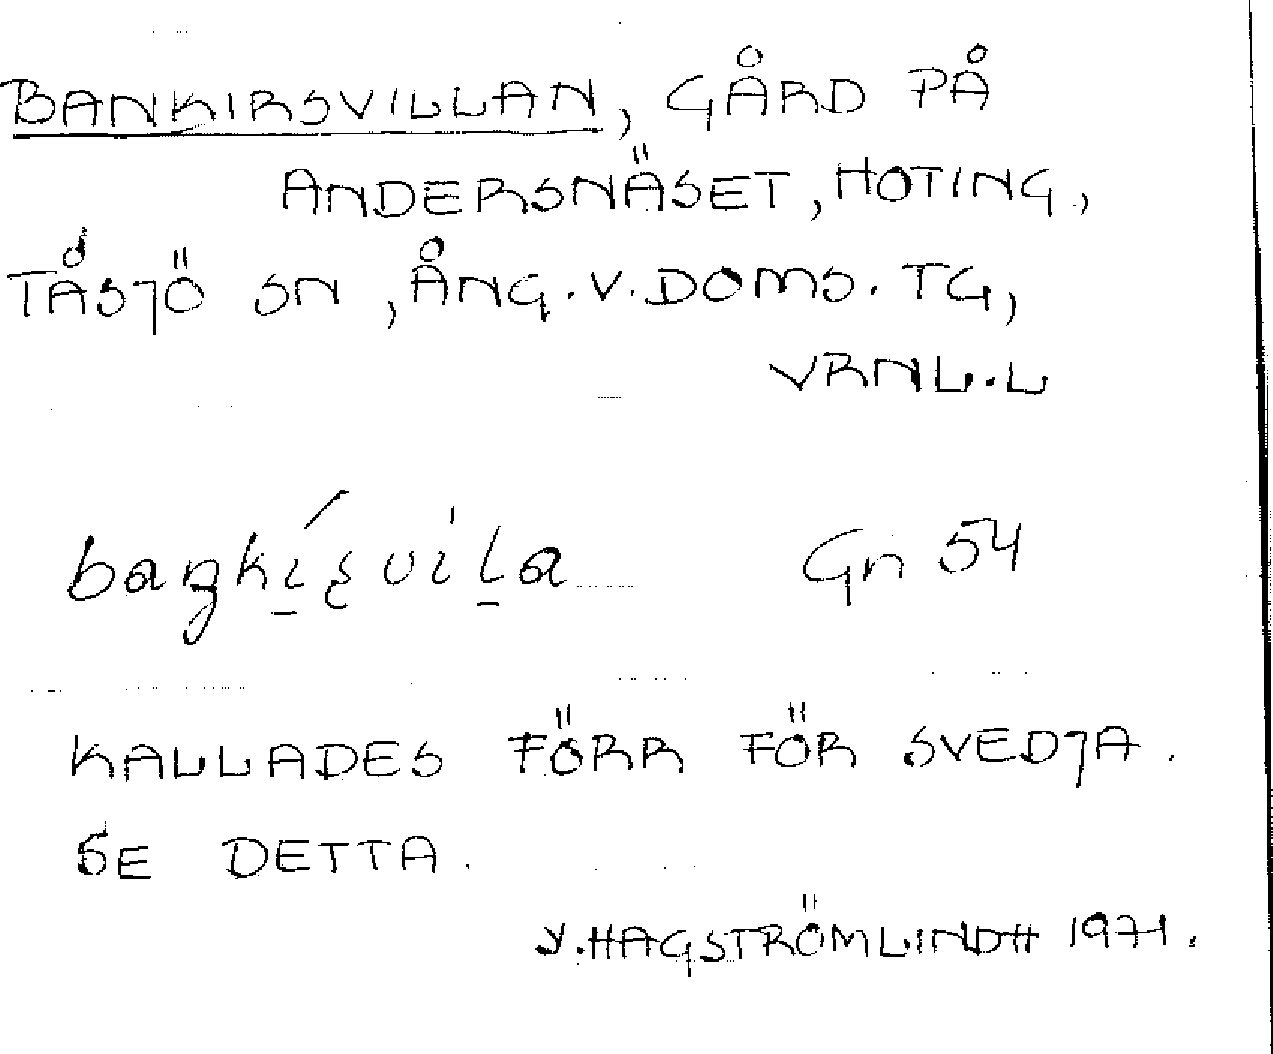 BANKIRSVILLAN, GÅRD PÅ
ANDERSNÄSET, HOTING,
TÅSJÖ SN, ÅNG.V.DOMS.TG,
VRNL.L
Gn 54
KALLADES FÖRR FÖR SVEDJA.
SE DETTA.
Y.HAGSTRÖMLINDH 1971.